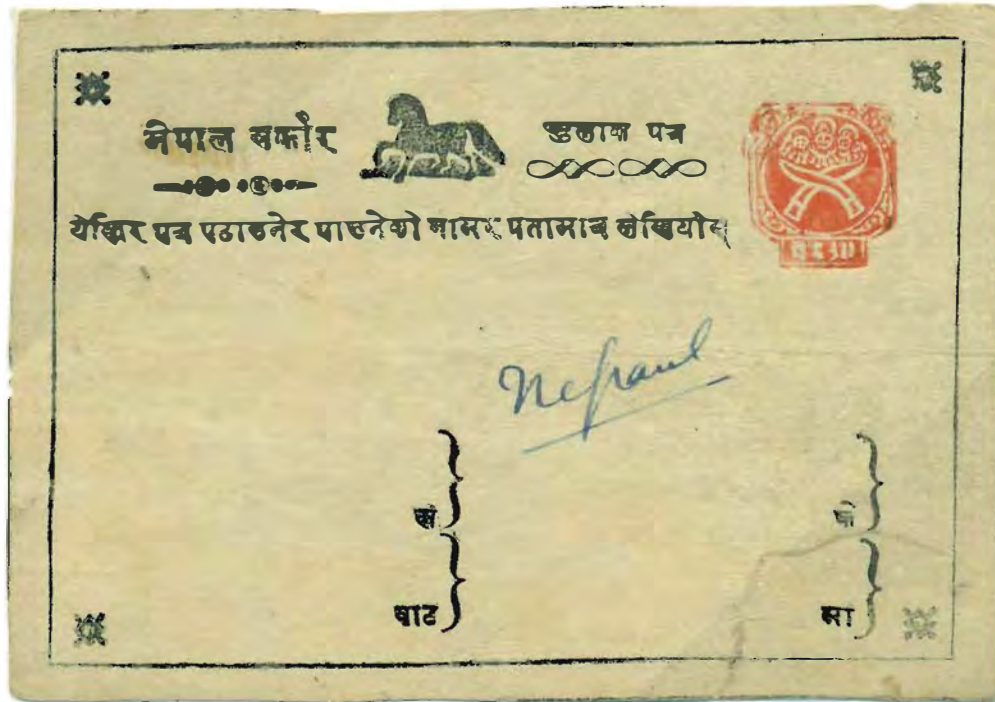 नेपाल सर्कार
हुलाक पत्र
येस्तिर पत्र पठाउनेर पाउनेको नामर पतामात्र लेखियोस्
Nepaul
बाट
मा